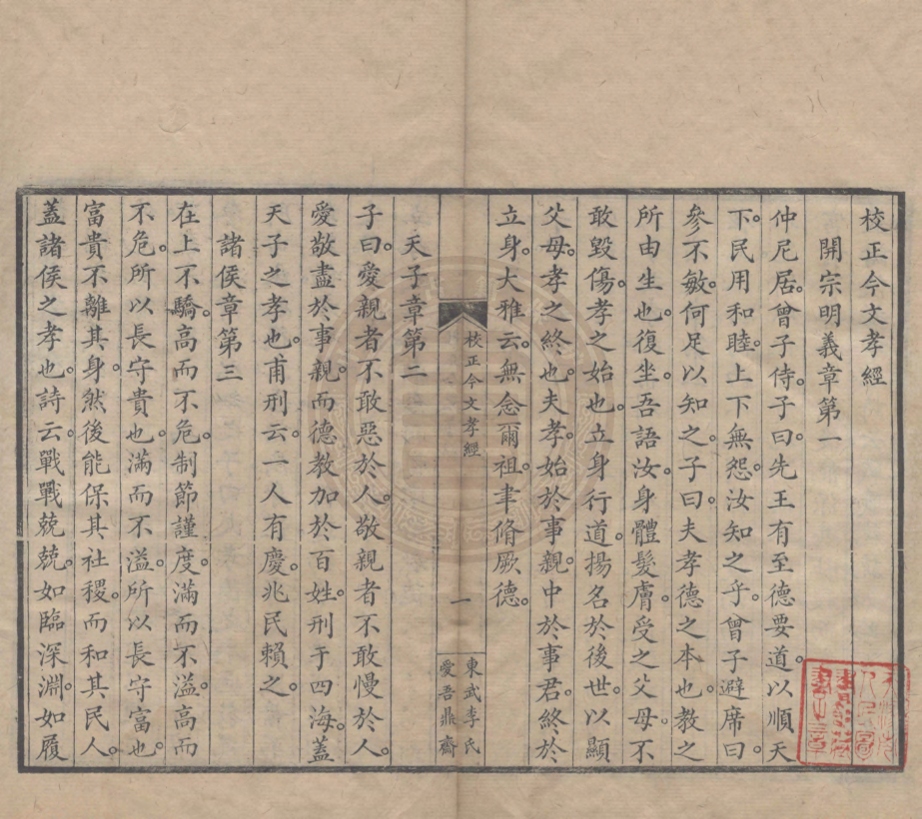 校正今文孝經
開宗明義章第一
仲尼居。曾子侍。子曰。先王有至德要道。以順天
下。民用和睦。上下無怨。汝知之乎。曾子避席曰。
參不敏。何足以知之。子曰。夫孝德之本也。教之
所由生也。復坐。吾語汝。身體髮膚。受之父母。不
敢毀傷。孝之始也。立身行道。揚名於後世。以顯
父母。孝之終也。夫孝。始於事親。中於事君。終於
立身。大雅云。無念爾祖。聿脩厥德。
校正今文孝經
一
東武李氏
愛吾鼎齋
天子章第二
子曰。愛親者不敢惡於人。敬親者不敢慢於人。
愛敬盡於事親。而德教加於百姓。刑于四海。蓋
天子之孝也。甫刑云。一人有慶。兆民賴之。
諸侯章第三
在上不驕。高而不危。制節謹度。滿而不溢。高而
不危。所以長守貴也。滿而不溢。所以長守富也。
富貴不離其身。然後能保其社稷。而和其民人。
蓋諸侯之孝也。詩云。戰戰兢兢。如臨深淵。如履